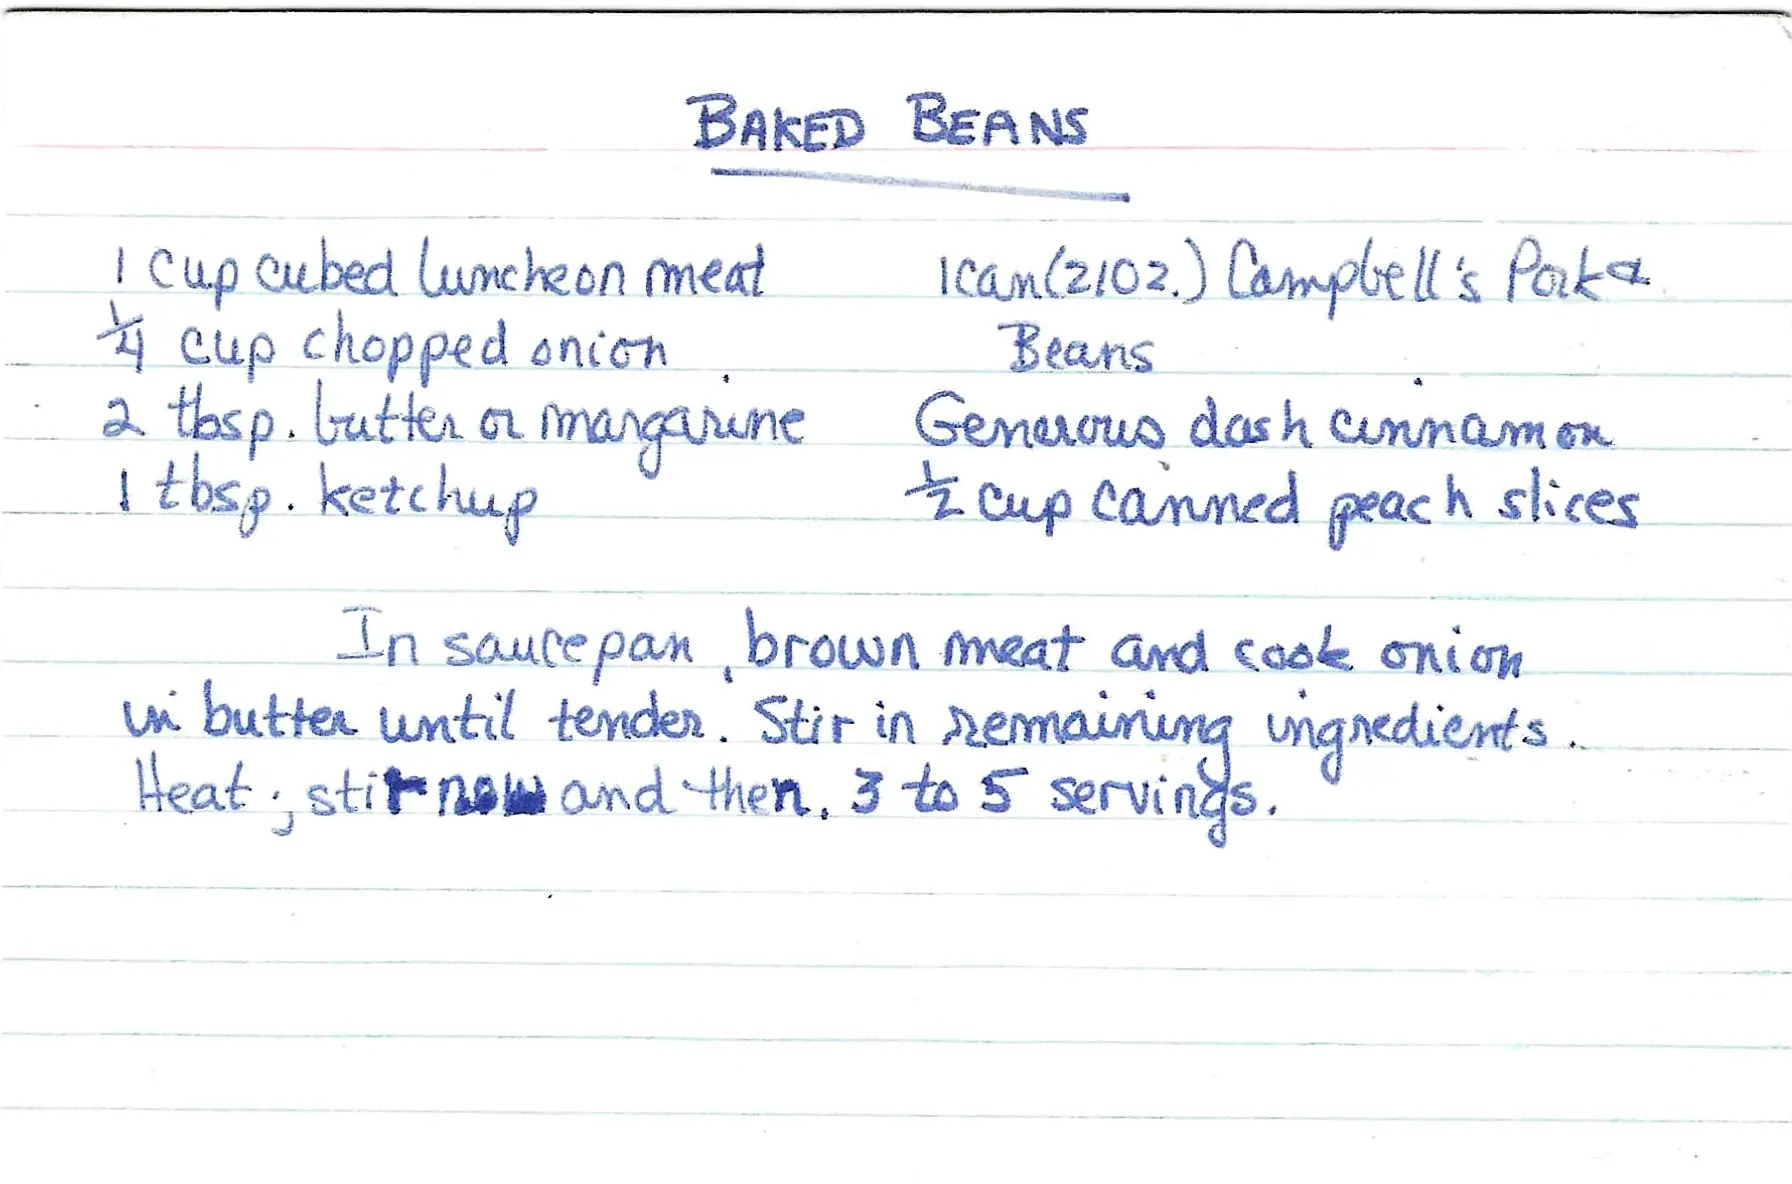 BAKED BEANS
1 cup cubed luncheon meat
1/4 cup chopped onion
2 tbsp. butter or margarine
1 tbsp. ketchup
1 can (21 oz.) Campbell's Pork &
Beans
Generous dash cinnamon
1/2 cup canned peach slices
In saucepan, brown meat and cook onion
in butter until tender. Stir in remaining ingredients.
Heat; stir now and then. 3 to 5 servings.